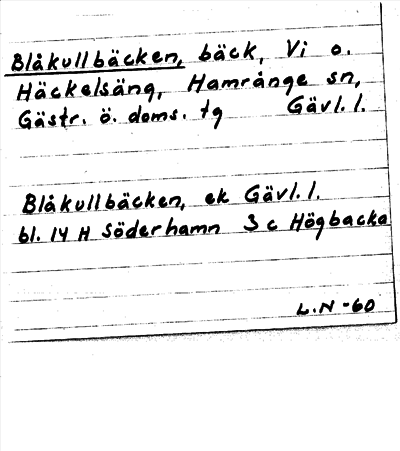 Blåkullbäcken, bäck, Vi o.
Häckelsäng, Hamrånge sn,
Gästr. ö. doms. tg Gävl. l.
Blåkullbäcken, ek Gävl. l.
bl. 14 H Söderhamn 3 c Högbacka
L.N -60